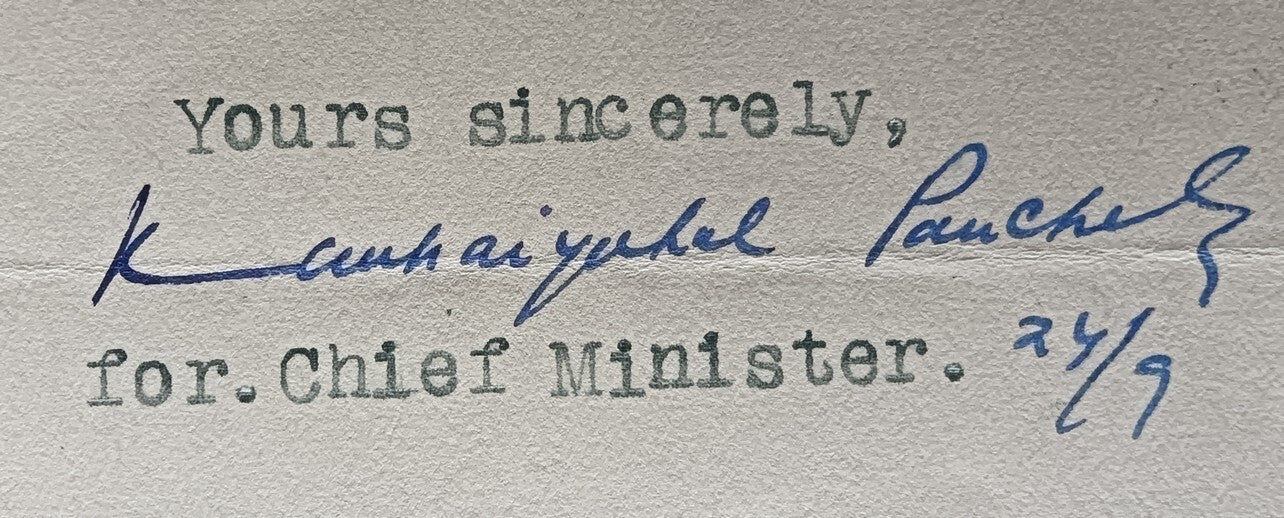 Yours sincerely,
Kanhaiyalal Pancholy
for. Chief Minister. 24/9